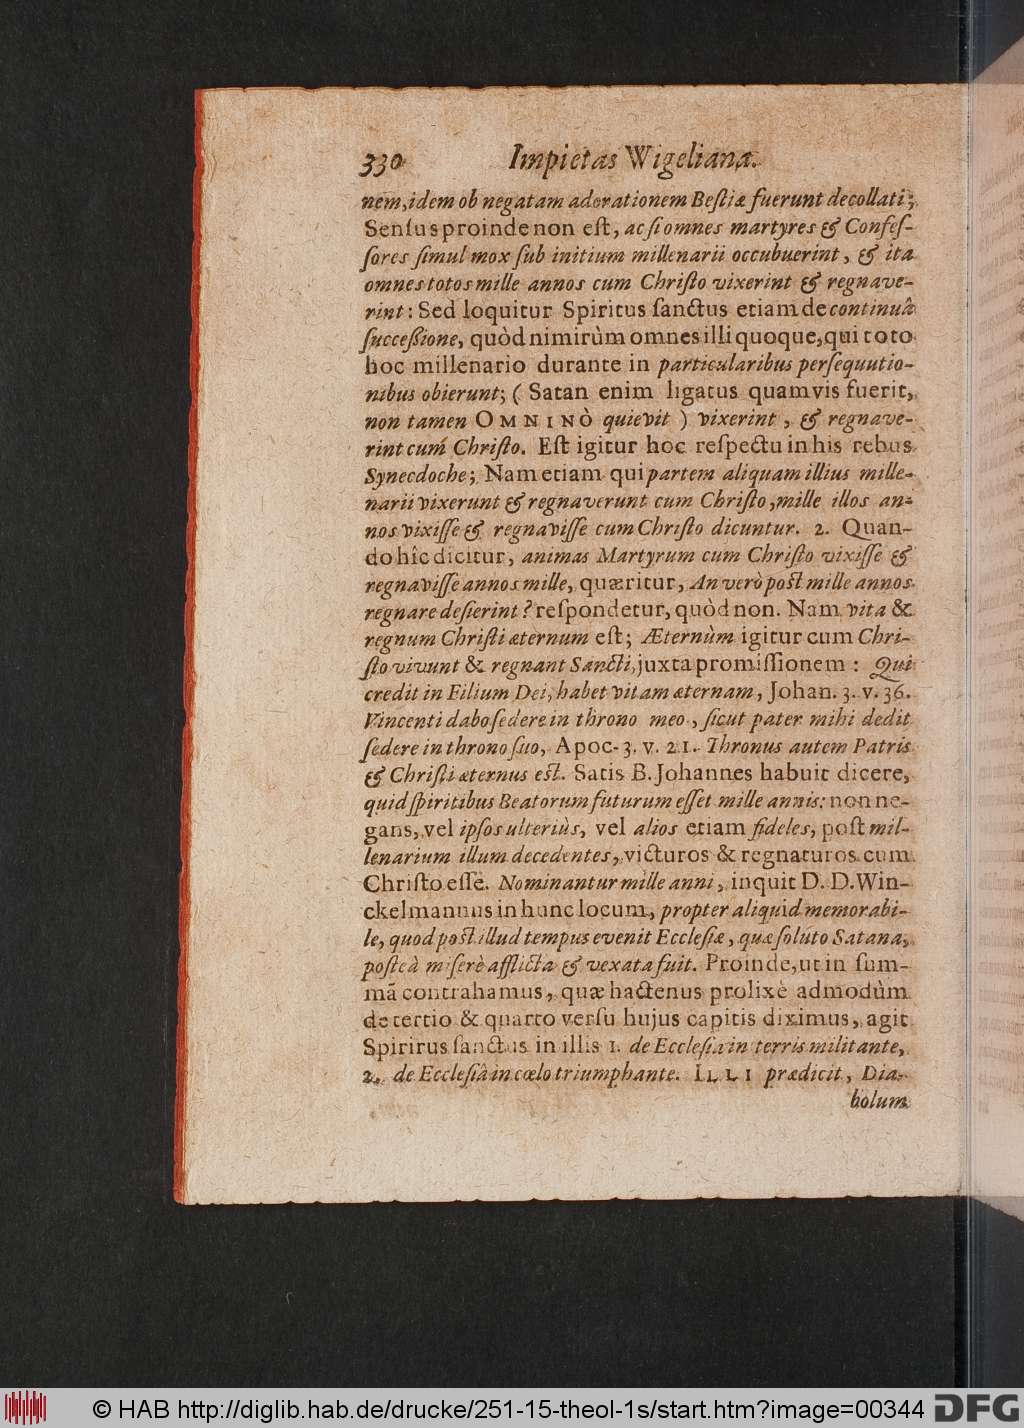 330 Impietas Wigeliana.
nem, idem ob negatam adorationem Beſtiæ fuerunt decollati;
Senſus proinde non eſt, ac ſi omnes martyres & Confeſ-
ſores ſimul mox ſub initium millenarii occubuerint, & ita
omnes totos mille annos cum Chriſto vixerint & regnave-
rint: Sed loquitur Spiritus ſanctus etiam de continuâ
ſucceſſione, quòd nimirùm omnes illi quoque, qui toto
hoc millenario durante in particularibus perſequutio-
nibus obierunt; ( Satan enim ligatus quamvis fuerit,
non tamen OMNINÒ quievit ) vixerint, & regnave-
rint cum Chriſto. Eſt igitur hoc reſpectu in his rebus
Synecdoche; Nam etiam qui partem aliquam illius mille-
narii vixerunt & regnaverunt cum Chriſto, mille illos an-
nos vixiſſe & regnaviſſe cum Chriſto dicuntur. 2. Quan-
do hîc dicitur, animas Martyrum cum Chriſto vixiſſe &
regnaviſſe annos mille, quæritur, An verò poſt mille annos
regnare deſierint? reſpondetur, quòd non. Nam vita &
regnum Chriſti æternum eſt; Æternùm igitur cum Chri-
ſto vivunt & regnant Sancti, juxta promiſſionem: Qui
credit in Filium Dei, habet vitam æternam, Johan. 3. v. 36.
Vincenti dabo ſedere in throno meo, ſicut pater mihi dedit
ſedere in throno ſuo, Apoc. 3. v. 21. Thronus autem Patris
& Chriſti æternus eſt. Satis B. Johannes habuit dicere,
quid ſpiritibus Beatorum futurum eſſet mille annis: non ne-
gans, vel ipſos ulteriùs, vel alios etiam fideles, poſt mil-
lenarium illum decedentes, victuros & regnaturos cum
Chriſto eſſe. Nominantur mille anni, inquit D. D. Win-
ckelmannus in hunc locum, propter aliquid memorabi-
le, quod poſt illud tempus evenit Eccleſiæ, quæ ſoluto Satana,
poſteà miſerè afflicta & vexata fuit. Proinde, ut in ſum-
mã contrahamus, quæ hactenus prolixè admodùm
de tertio & quarto verſu hujus capitis diximus, agit
Spirirus ſanctus in illis 1. de Eccleſia in terris militante,
2. de Eccleſiâ in cœlo triumphante. ILLI prædicit, Dia-
bolum
© HAB http://diglib.hab.de/drucke/251-15-theol-1s/start.htm?image=00344
DFG